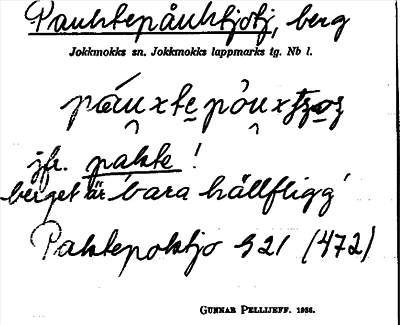 Pauktepåuktjåtj, berg
Jokkmokks sn. Jokkmokks lappmarks tg. Nb l.
jfr. pakte !
berget är 'bara hällfligg'
Paktepoktjo 921 (472)
GUNNAR PELLIJEFF. 1956.